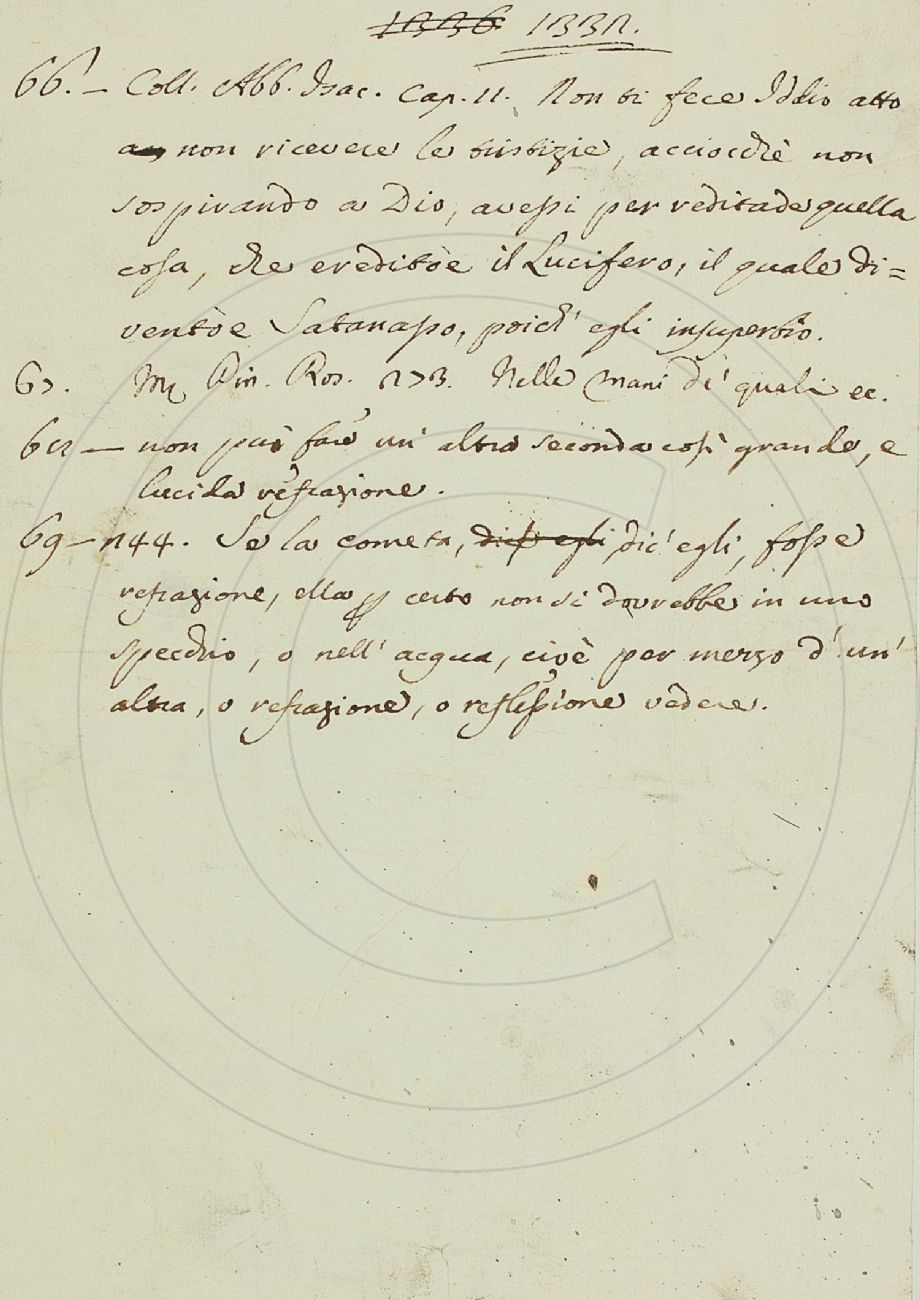 1336 1338.
66. – Coll. Abb. Isac. Cap. 11. Non ti fece Iddio atto
a non ricevere le tristizie, acciocchè non
sospirando a Dio, avessi per reditade quella
cosa, che ereditòe il Lucifero, il quale di=
ventòe Satanasso, poich' egli insuperbìo.
67. Din. Ros. 273. Nelle mani de' quali ec.
68 – non può fare un' altra seconda così grande, e
lucida refrazione.
69 – 244. Se la cometa, diss' egli dic' egli, fosse
refrazione, ella certo non si dovrebbe in uno
specchio, o nell' acqua, cioè per mezzo d' un'
altra, o refrazione, o reflessione vedere.